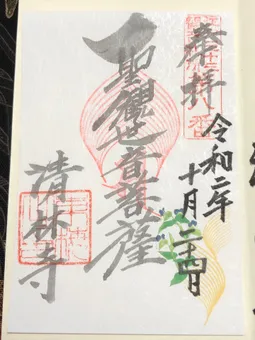 奉拝
令和二年
十月二十四日
聖観世音菩薩
清林寺